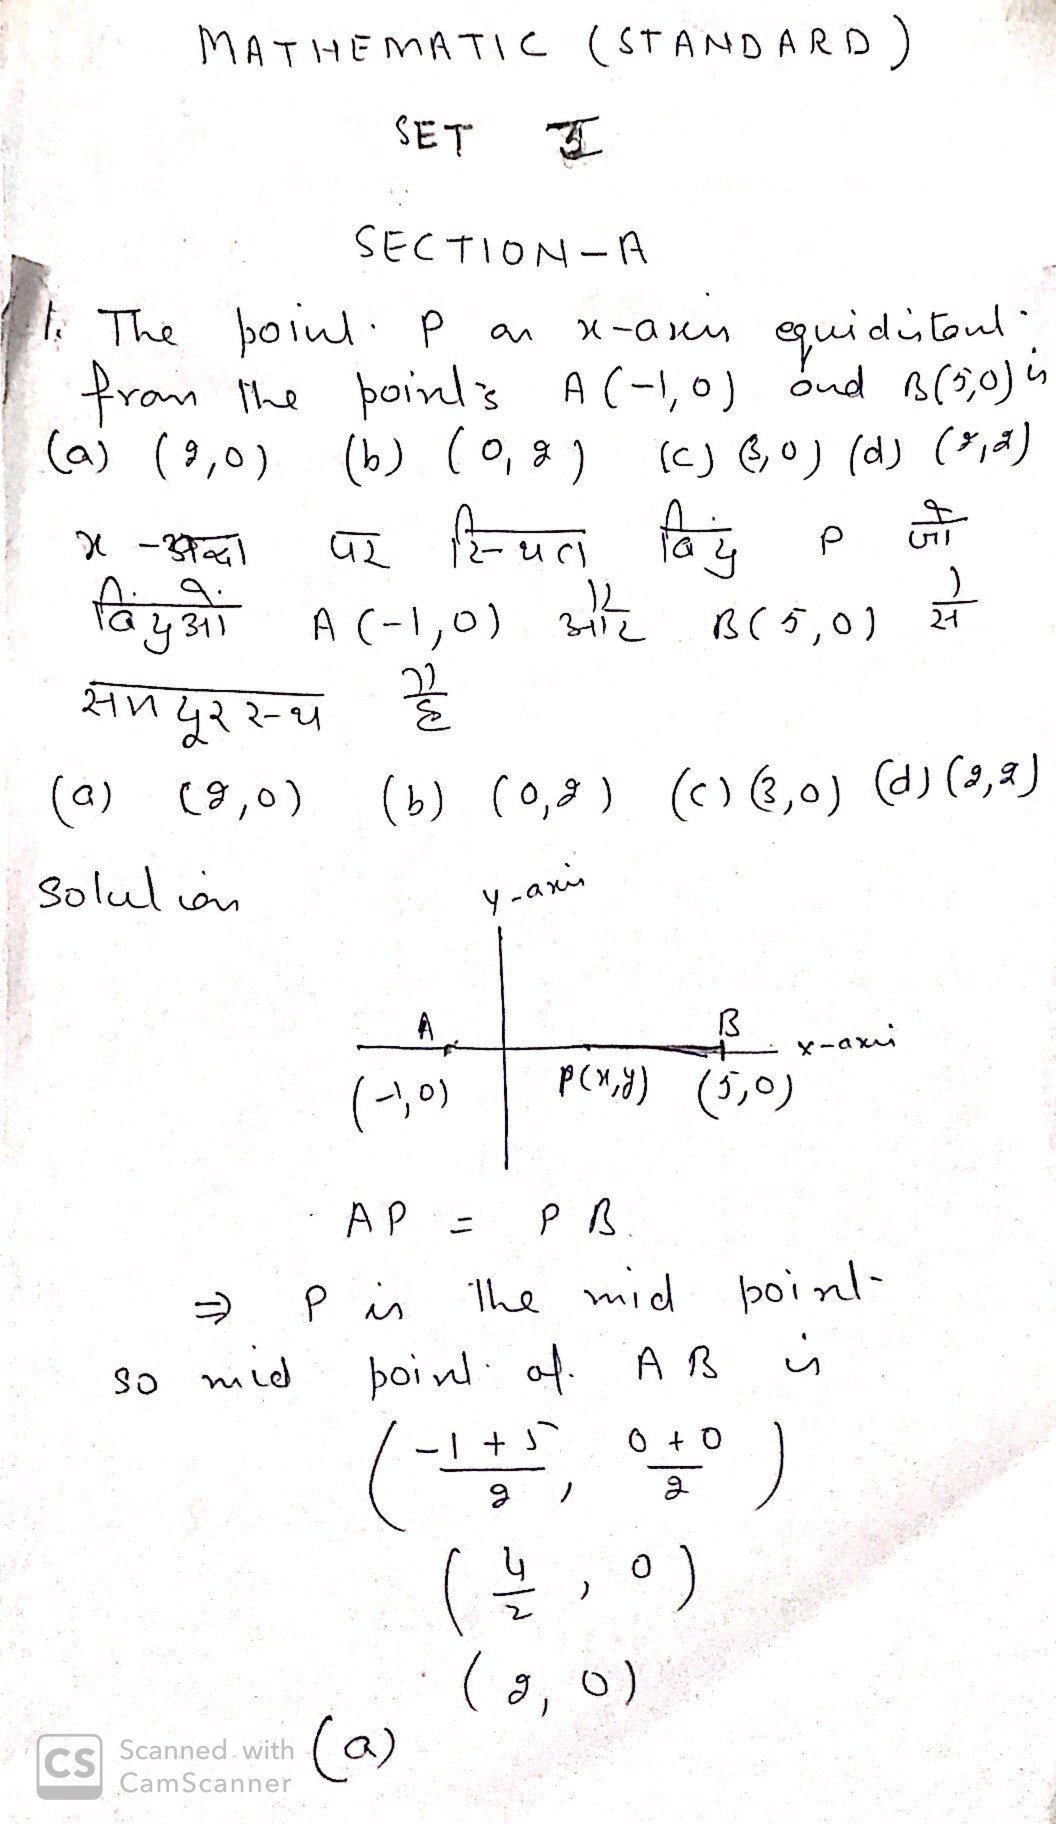 MATHEMATIC (STANDARD)
SET I
SECTION-A
1. The point P on x-axis equidistant
from the point's A(-1,0) and B(5,0) is
(a) (2,0) (b) (0,2) (c) (3,0) (d) (2,2)
x-अक्ष पर स्थित बिंदु P जो
बिंदुओं A(-1,0) और B(5,0) से
समदूरस्थ है
(a) (2,0) (b) (0,2) (c) (3,0) (d) (2,2)
solution
y-axis
A B x-axis
(-1,0) P(x,y) (5,0)
AP = PB
⇒ P is the mid point
so mid point of AB is
(-1+5/2, 0+0/2)
(4/2, 0)
(2,0)
(a)
CS Scanned with
CamScanner